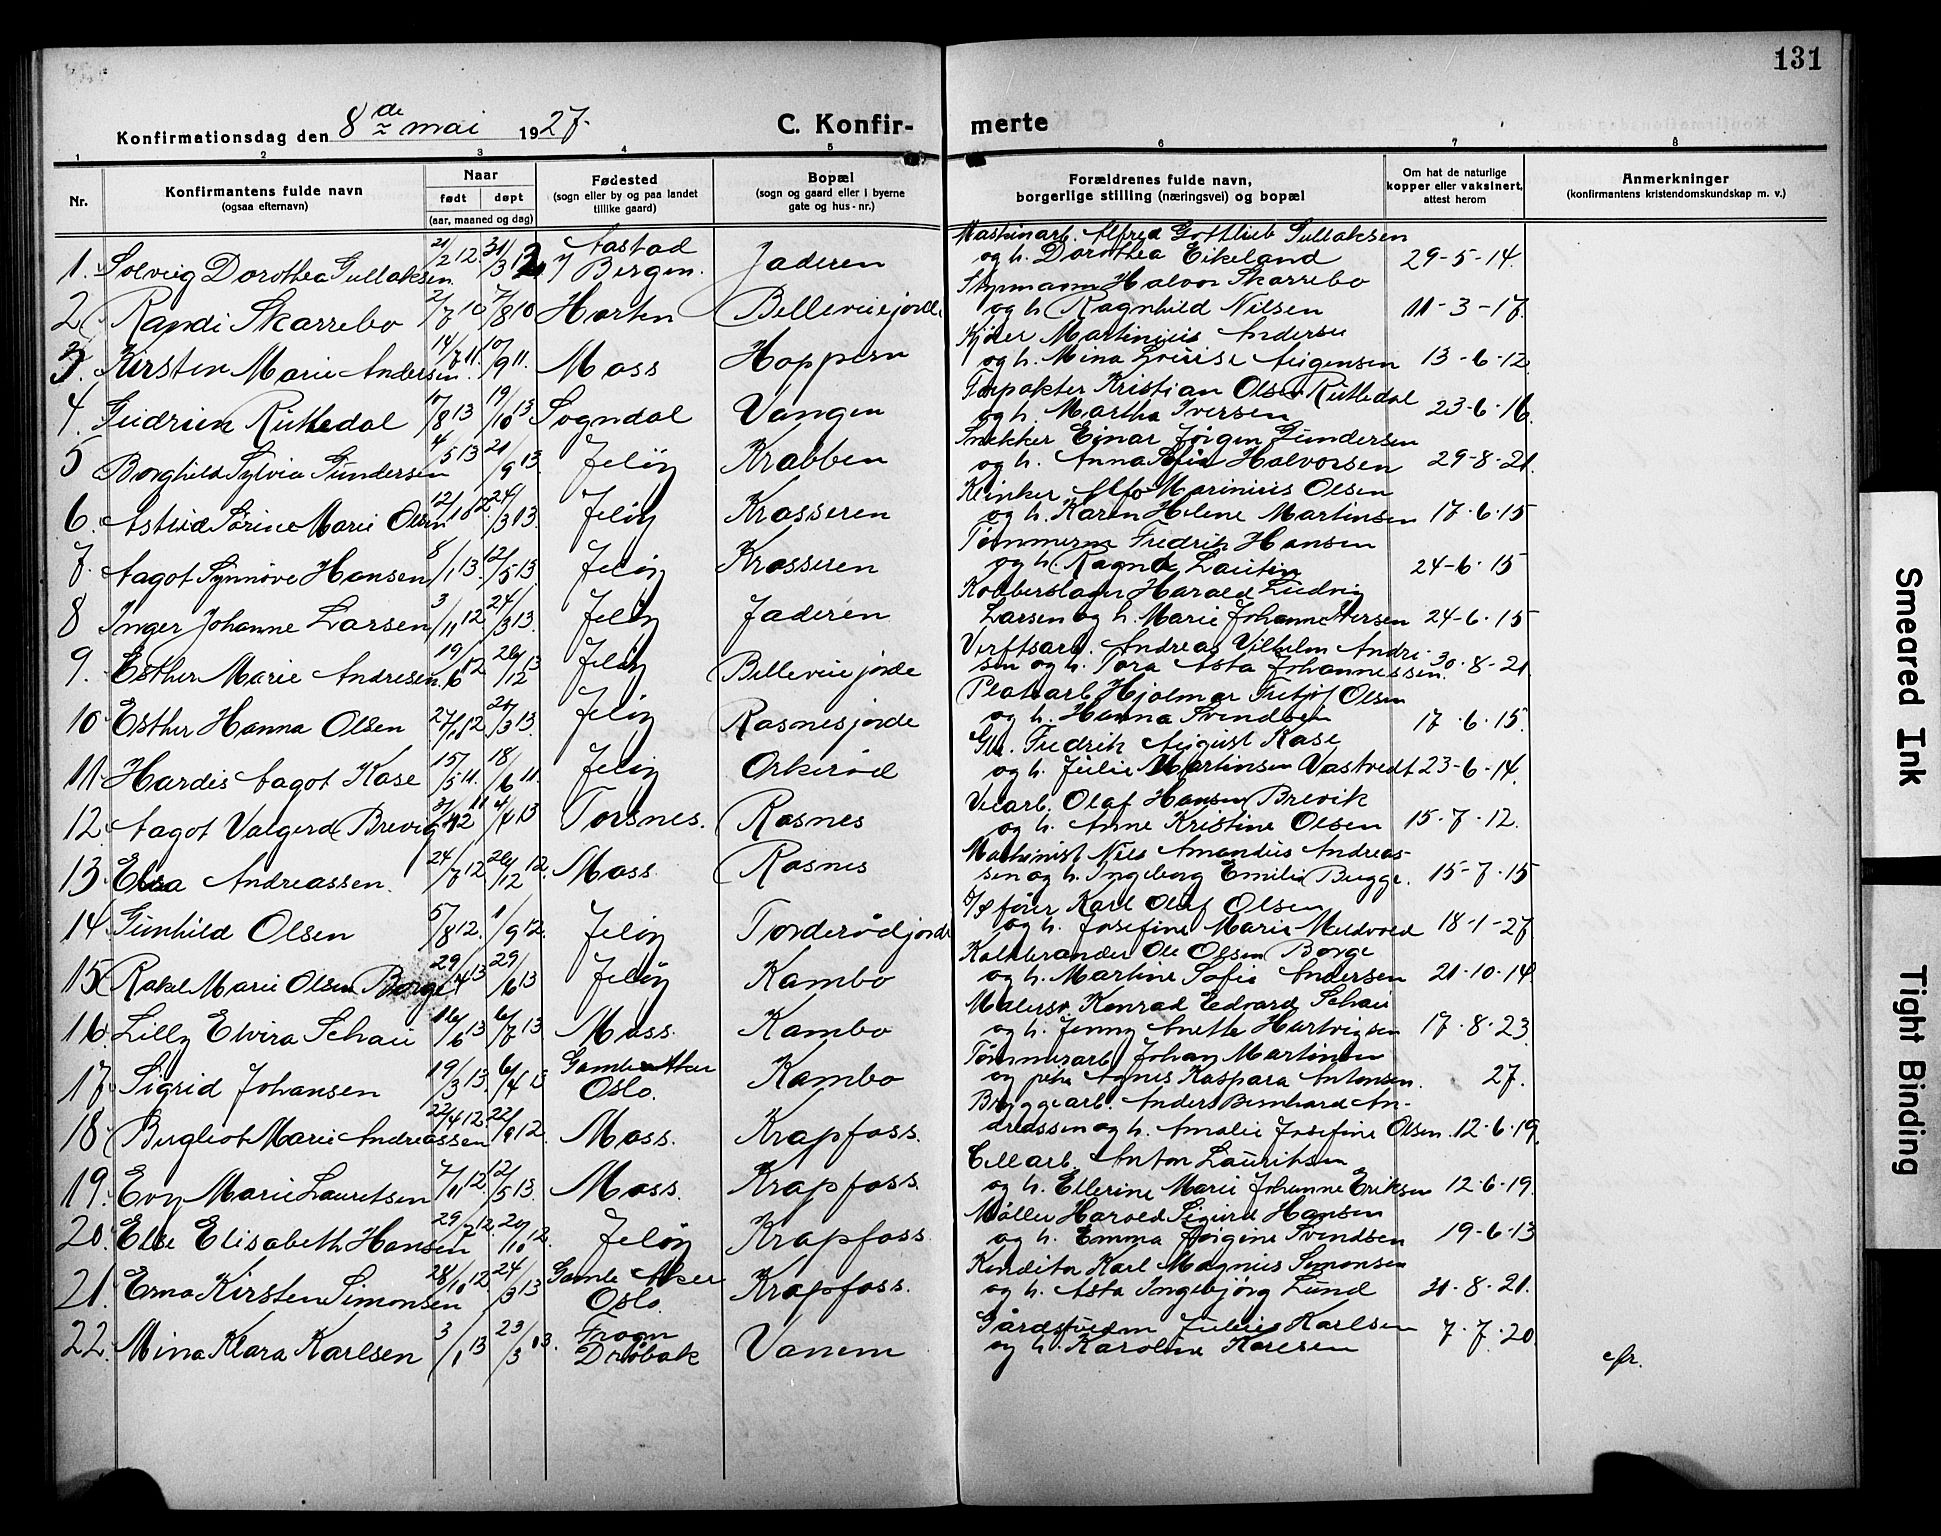 131
Konfirmationsdag den 8de mai 1927.
C. Konfir-
merte
1 2 3 4 5 6 7 8
Nr.
Konfirmantens fulde navn
(ogsaa efternavn)
Naar
født døpt
(aar, maaned og dag)
Fødested
(sogn eller by og paa landet
tillike gaard)
Bopæl
(sogn og gaard eller i byerne
gate og hus-nr.)
Forældrenes fulde navn,
borgerlige stilling (næringsvei) og bopæl
Om hat de naturlige
kopper eller vaksinert,
attest herom
Anmerkninger
(konfirmantens kristendomskundskap m. v.)
1. Solveig Dorothea Gullaksen 21/2 12. 31/3 12 Aastad Bergen. Jaderen Maskinarb. Alfred Gottlieb Gullaksen
og h. Dorothea Eikeland 29-5-14.
2. Randi Skarrebo 2/7 10 7/8 10 Horten Bellevuejordet Styrmann Halvor Skarrebo
og h. Ragnhild Nilsen 11-3-17.
3. Kirsten Marie Andersen 14/7 11. 10/9 11. Moss Hoppern Kjører Martinius Andersen
og h. Mina Lovise Augensen 13-6-12
4. Gudrun Rutledal 10/8 13 19/10 13 Sogndal Vangen Kristian Olsen Rutledal
og h. Martha Iversen 23-6-16.
5 Borghild Sylvia Gundersen 4/5 13 21/9 13 Jeløy Krabben Snekker Einar Jørgen Gundersen
og h. Anna Sofie Halvorsen 29-8-21.
6. Astrid Sørine Marie Olsen 12/10 12. 24/3 13. Jeløy Krosseren Klinker Alf Marinius Olsen
og h. Karen Helene Martinsen 17-6-15
7. Aagot Synnøve Hansen 8/1 13. 12/5 13. Jeløy Krosseren Tømmerm Fredrik Hansen
og h. Ragna Lautin 24-6-15
8 Inger Johanne Larsen 3/11 12 24/3 13. Jeløy Jaderen Kobberslager Harald Ludvig
Larsen og h. Marie Johanne Iversen 24-6-15
9. Esther Marie Andresen 19/6 12 26/12 13 Jeløy Bellevuejorde Verftsarb. Andreas Vilhelm Andre-
sen og h. Tora Asta Johannessen. 30-8-21
10 Esther Hanna Olsen 27/11 12 24/3 13. Jeløy Rosnesjorde Platearb Hjalmar Fritjof Olsen
og h. Hanna Svendsen 17-6-15.
11 Hardis Aagot Kase 15/5 11. 18/6 11. Jeløy Orkerød Fredrik August Kase
og h. Julie Martinsen Vastvedt 23-6-14.
12. Aagot Valgerd Brevig 31/12 11 4/4 13 Torsnes. Rosnes Olaf Hansen Brevik
og h. Anne Kristine Olsen 15-7-12.
13. Elsa Andreassen. 24/7 12 26/12 12. Moss. Rosnes Maskinist Nils Amandus Andreas-
sen og h. Ingeborg Emilie Bugge. 15-7-15
14. Gunhild Olsen 5/8 12. 1/9 12. Jeløy Torderødjorde fører Karl Olaf Olsen
og h. Josefine Marie Meldvold 18-1-27
15 Rakel Marie Olsen Borge 29/4 13 29/6 13 Jeløy Kambo Kalkbrænder Ole Olsen Borge
og h. Martine Sofie Andersen 21-10-14.
16. Lilly Elvira Schau 16/6 13 6/7 13 Moss. Kambo Konrad Edvard Schau
og h. Jenny Anette Hartvigsen 17-8-23.
17. Sigrid Johansen 19/3 13. 6/4 13 Gamle Aker Oslo. Kambo Tømmerarb. Johan Martinsen
og Agnes Kaspara Antonsen. 27.
18. Bergliot Marie Andreassen 22/4 12. 22/9 12. Moss. Krapfoss. Bryggearb. Anders Bernhard An-
dreassen og h. Amalie Josefine Olsen. 12-6-19
19. Evy Marie Lauritsen 7/11 12 12/5 13. Moss. Krapfoss. Cellarb. Anton Lauritsen
og h. Ellerine Marie Johanne Eriksen 12-6-19.
20. Else Elisabeth Hansen 29/7 12. 20/10 12. Jeløy Krapfoss. Møller Harald Sigurd Hansen
og h. Emma Jørgine Svendsen 19-6-13
21. Erna Kirsten Simonsen 28/10 12. 24/3 13 Gamle Aker Oslo. Krapfoss. Konditor Karl Magnus Simonsen
og h. Asta Ingebjørg Lund 31-8-21.
22. Mina Klara Karlsen 3/1 13 23/3 13. Frogn Drøbak Vanem Gårdsfuldm Julius Karlsen
og h. Karoline Karlsen 7-7-20. cfr.
Smeared Ink
Tight Binding